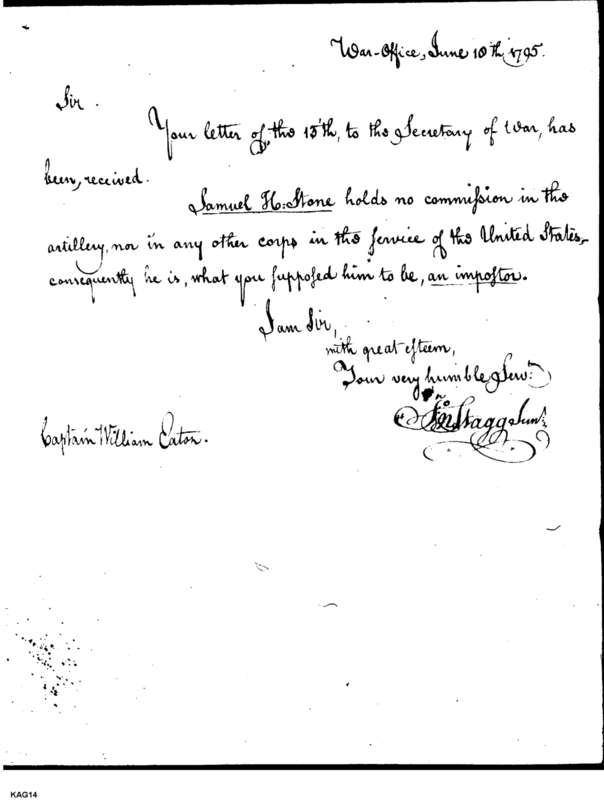 War-Office, June 10th, 1795.
Sir.
Your letter of the 15th, to the Secretary of War, has
been, received.
Samuel H: Stone holds no commiſsion in the
artillery, nor in any other corps in the ſervice of the United States,
consequently he is, what you ſuppoſed him to be, an impoſtor.
I am Sir,
with great eſteem,
Your very humble Serv:
Jno Stagg Junr.
Captain William Eaton.
KAG14